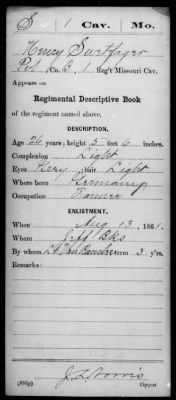 S | 1 | Cav. | Mo.
Henry
Pvt, Co. B, 1 Reg't Missouri Cav.
Appears on
Regimental Descriptive Book
of the regiment named above.
DESCRIPTION.
Age 26 years; height 5 feet 6 inches.
Complexion Light
Eyes Grey; hair Light
Where born Germany
Occupation Farmer
ENLISTMENT.
When Aug 13, 1861.
Where Jeff Bks
By whom Lt. ; term 3 y'rs.
Remarks:
J. L. Norris
Copyist.